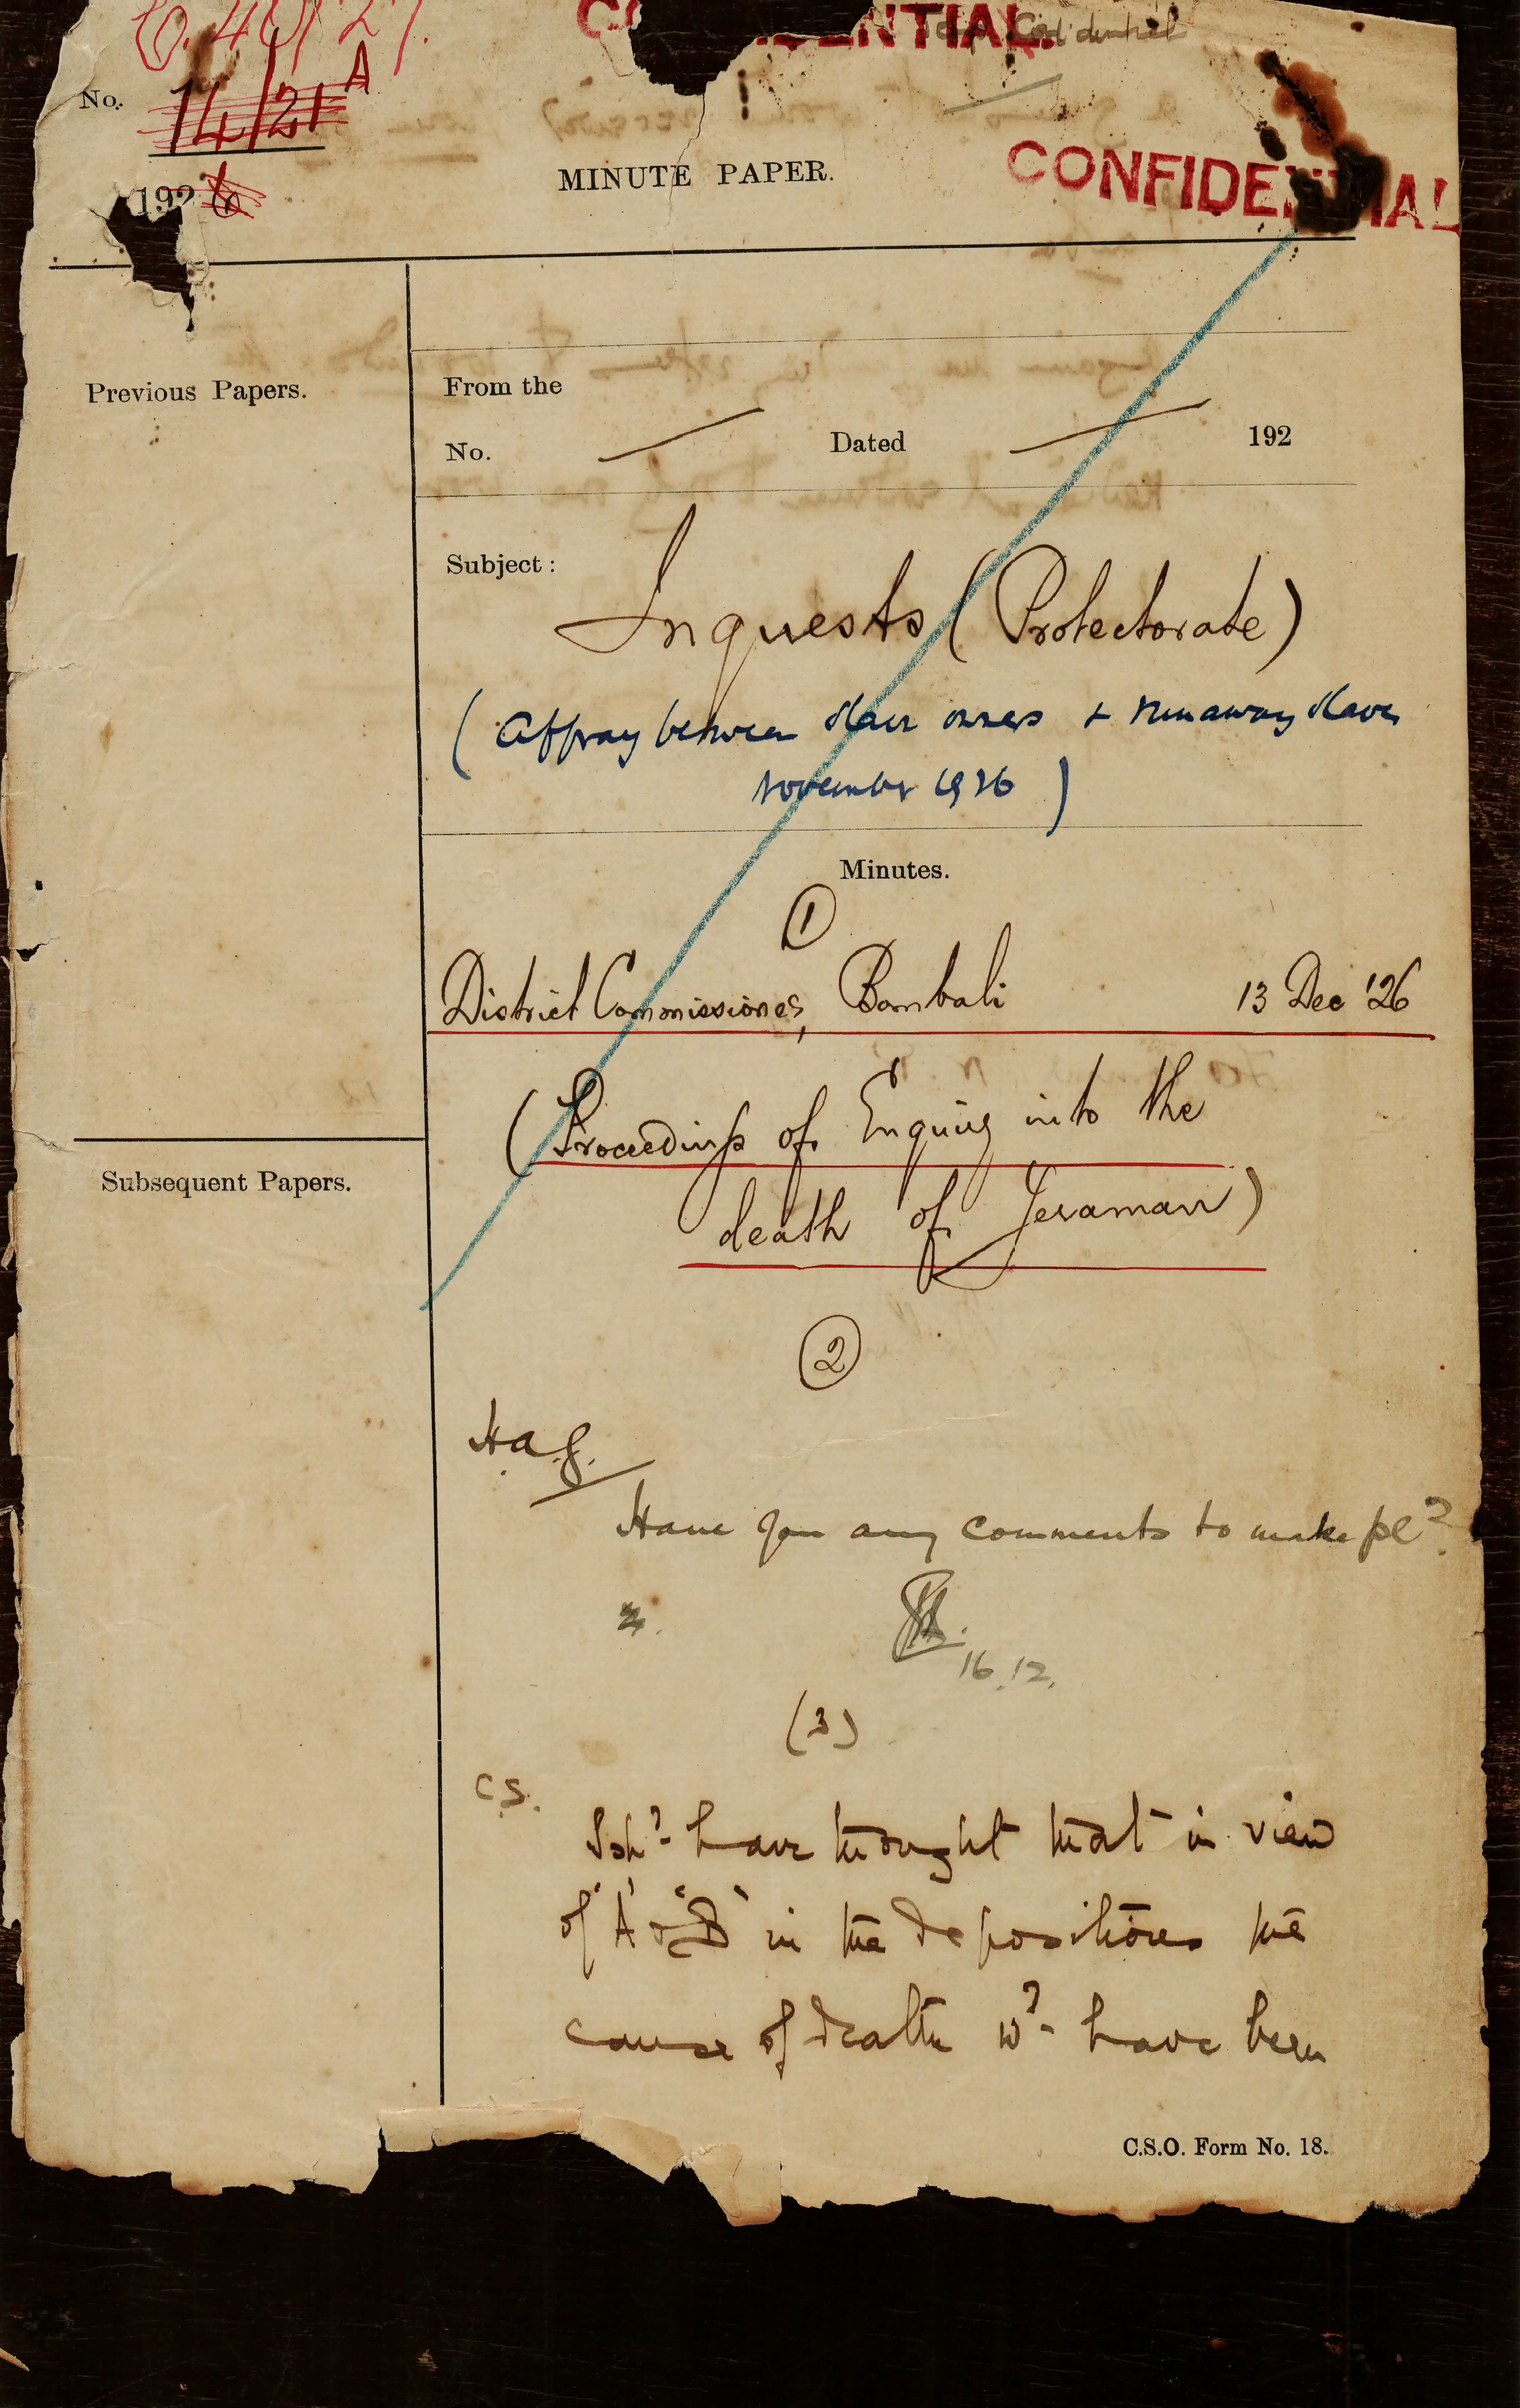 C. 40/27.
CONFIDENTIAL
Confidential
No. 14/21 A
1926
MINUTE PAPER.
CONFIDENTIAL
Previous Papers.
From the
No. Dated 192
Subject:
Inquests (Protectorate)
(Affray between slave owners & runaway slaves
November 1926)
Minutes.
(1)
District Commissioner, Bombali 13 Dec '26
(Proceedings of Enquiry into the
death of Jeraman)
Subsequent Papers.
(2)
H.A.G.
Have you any comments to make pl?
16.12.
(3)
C.S.
I shd have thought that in view
of 'A' & 'B' in the depositions the
cause of death wd have been
C.S.O. Form No. 18.